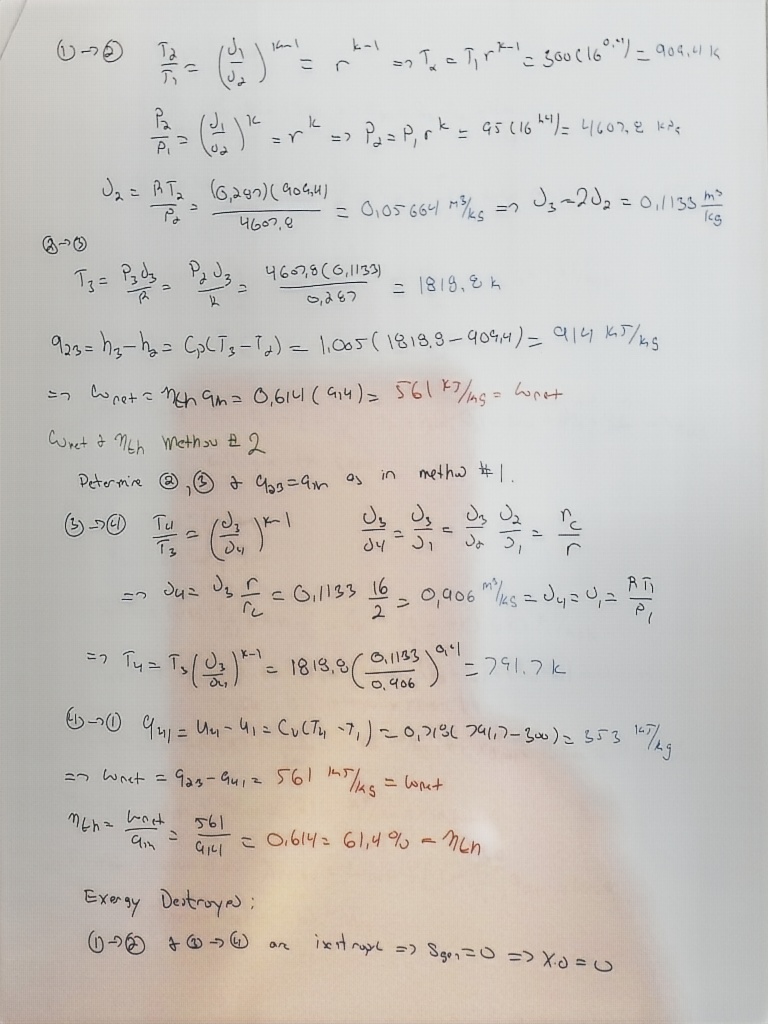 ① → ② T₂/T₁ = (υ₁/υ₂)^(k-1) = r^(k-1) => T₂ = T₁ r^(k-1) = 300(16^0,4) = 909,4 K
P₂/P₁ = (υ₁/υ₂)^k = r^k => P₂ = P₁ r^k = 95(16^1,4) = 4607,8 kPa
υ₂ = RT₂/P₂ = (0,287)(909,4)/4607,8 = 0,05664 m³/kg => υ₃ = 2υ₂ = 0,1133 m³/kg
② → ③
T₃ = P₃υ₃/R = P₂υ₃/R = 4607,8(0,1133)/0,287 = 1818,8 K
q₂₃ = h₃ - h₂ = Cp(T₃ - T₂) = 1,005(1818,8 - 909,4) = 914 kJ/kg
=> ωnet = ηth qin = 0,614(914) = 561 kJ/kg = ωnet
ωnet & ηth Method # 2
Determine ②, ③ & q₂₃ = qin as in method #1.
③ → ④ T₄/T₃ = (υ₃/υ₄)^(k-1) υ₃/υ₄ = υ₃/υ₁ = υ₃/υ₂ υ₂/υ₁ = rc/r
=> υ₄ = υ₃ r/rc = 0,1133 16/2 = 0,906 m³/kg = υ₄ = υ₁ = RT₁/P₁
=> T₄ = T₃(υ₃/υ₄)^(k-1) = 1818,8(0,1133/0.906)^0,4 = 791,7 K
④ → ① q₄₁ = u₄ - u₁ = Cv(T₄ - T₁) = 0,718(791,7 - 300) = 353 kJ/kg
=> ωnet = q₂₃ - q₄₁ = 561 kJ/kg = ωnet
ηth = ωnet/qin = 561/914 = 0.614 = 61,4% = ηth
Exergy Destroyed:
① → ② & ③ → ④ are isentropic => Sgen = 0 => X.D = 0